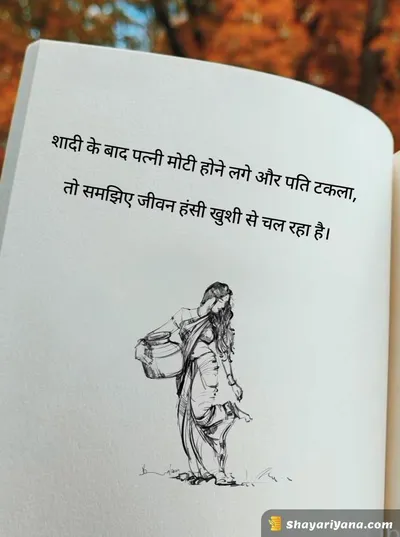 शादी के बाद पत्नी मोटी होने लगे और पति टकला,
तो समझिए जीवन हंसी खुशी से चल रहा है।
ShayariYana.com